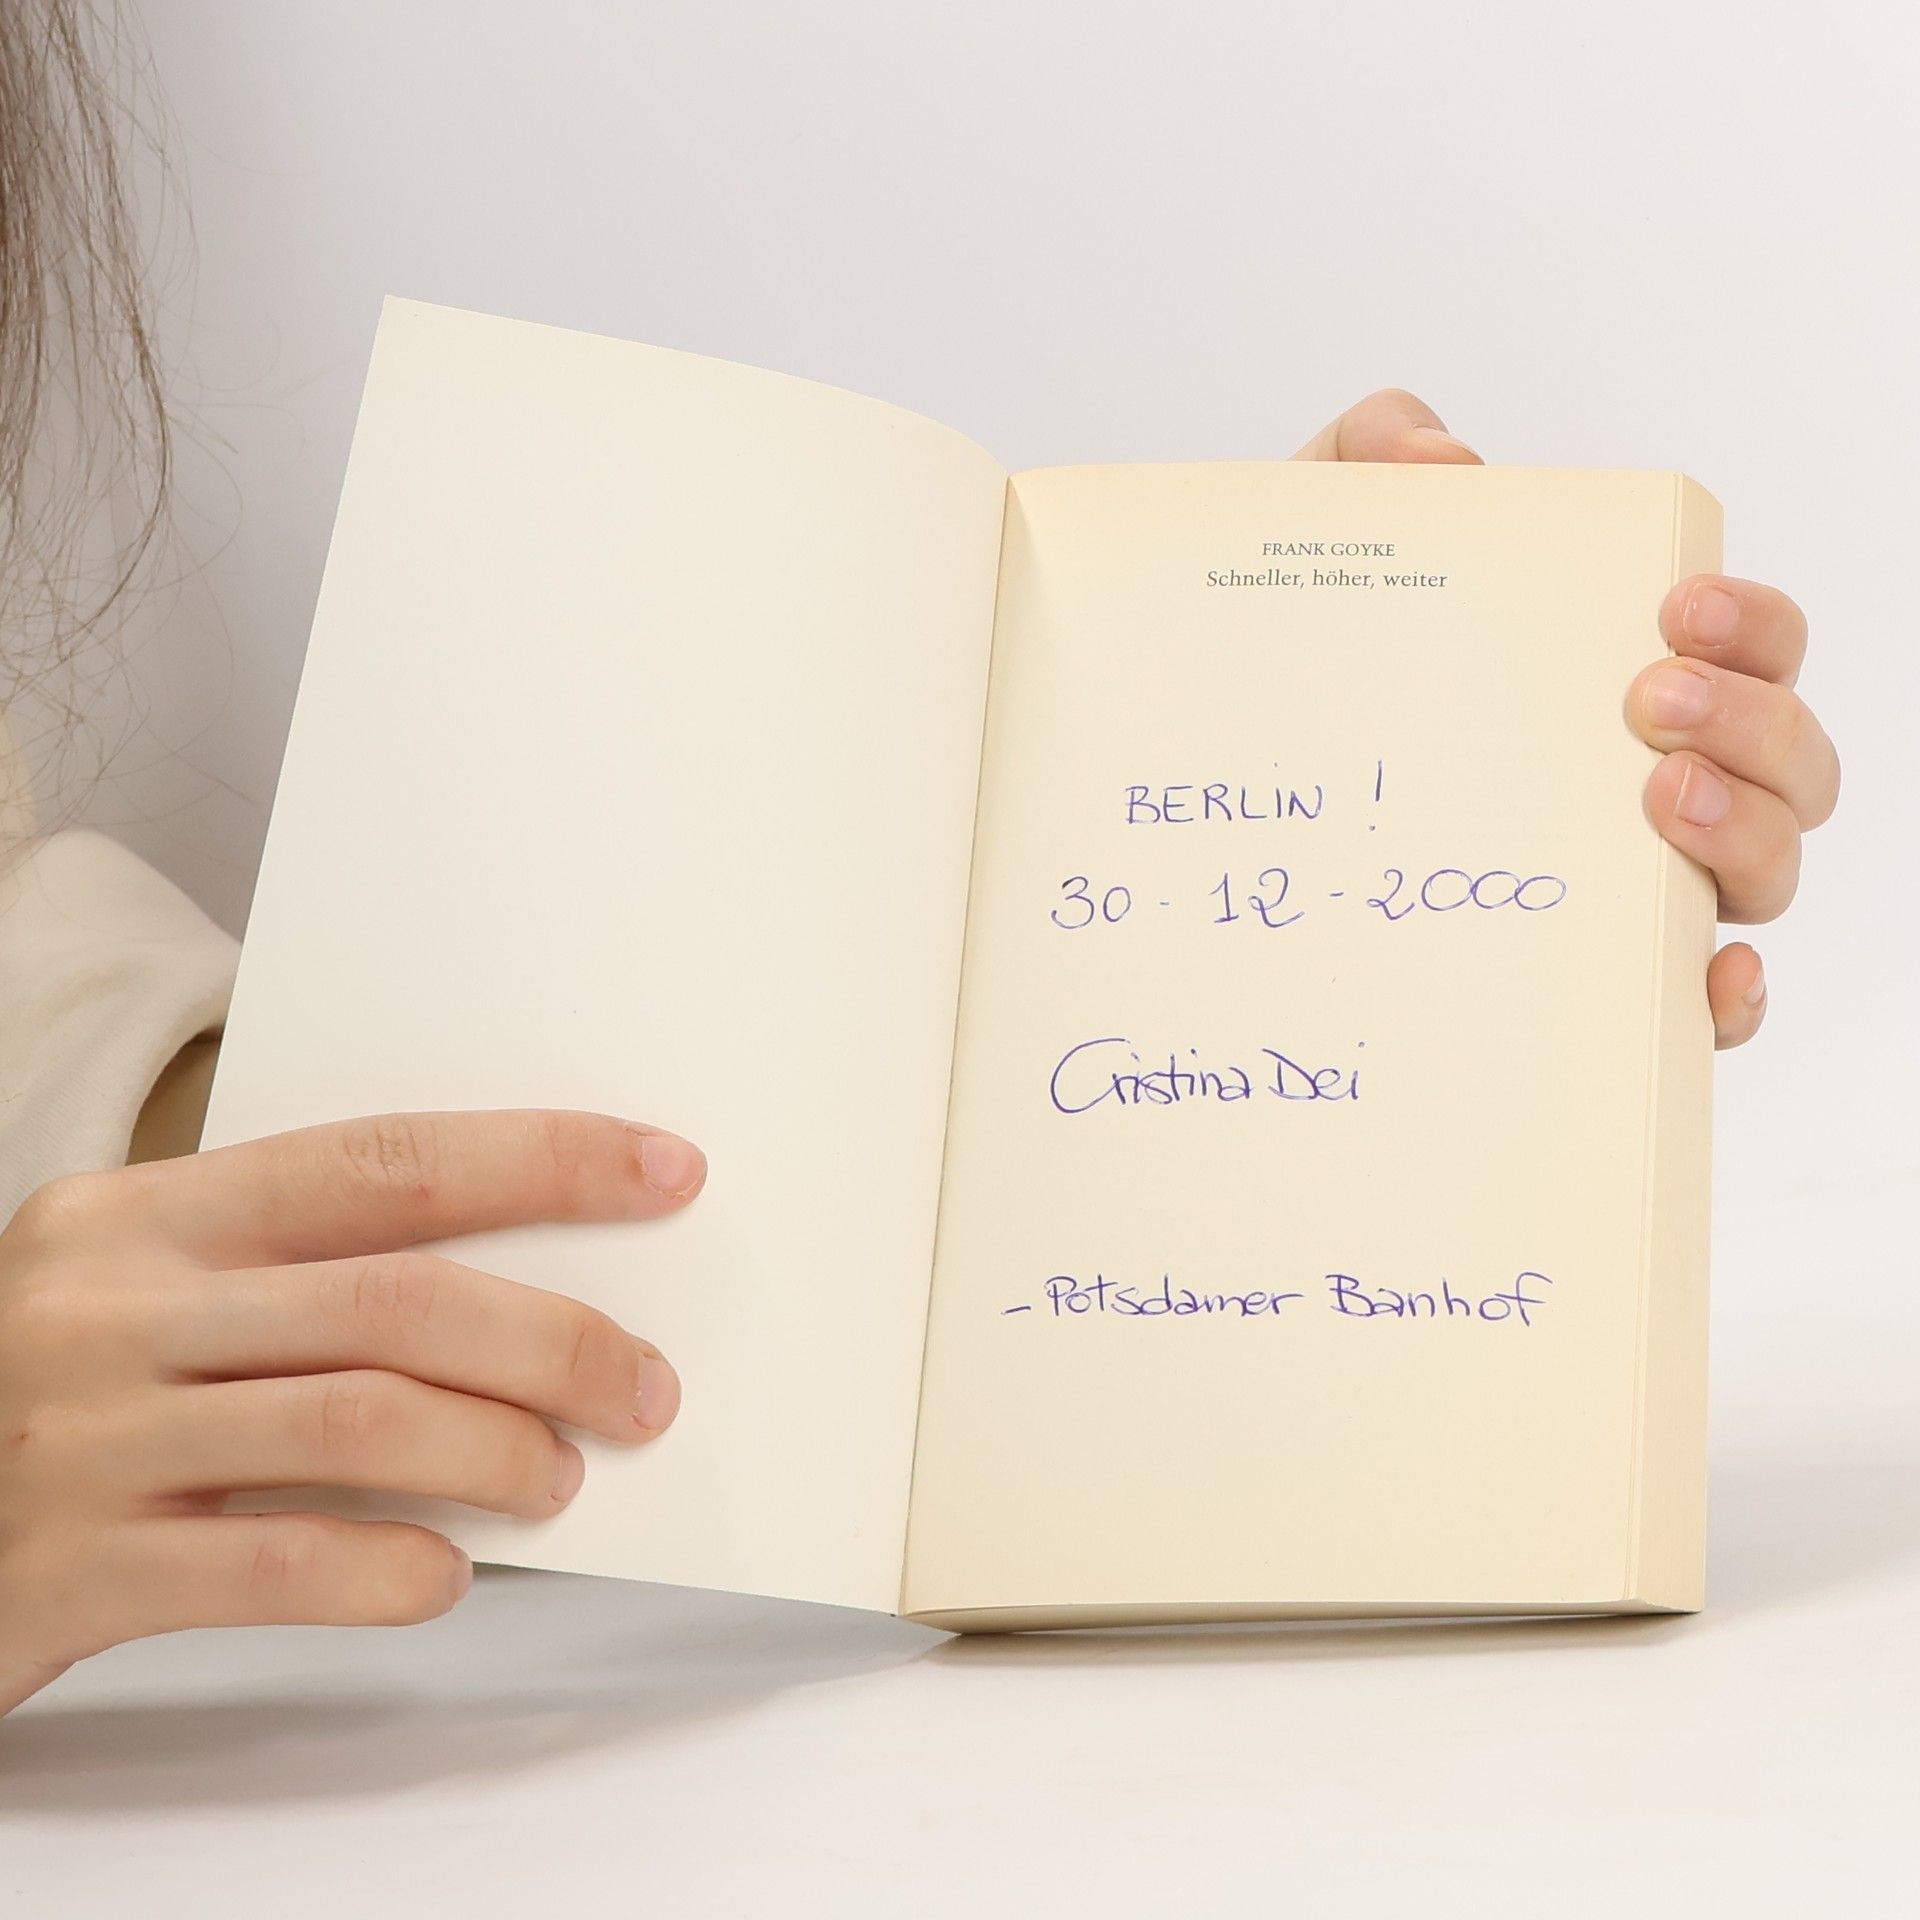 FRANK GOYKE
Schneller, höher, weiter
BERLiN !
30 - 12 - 2000
Cristina Dei
- Potsdamer Banhof